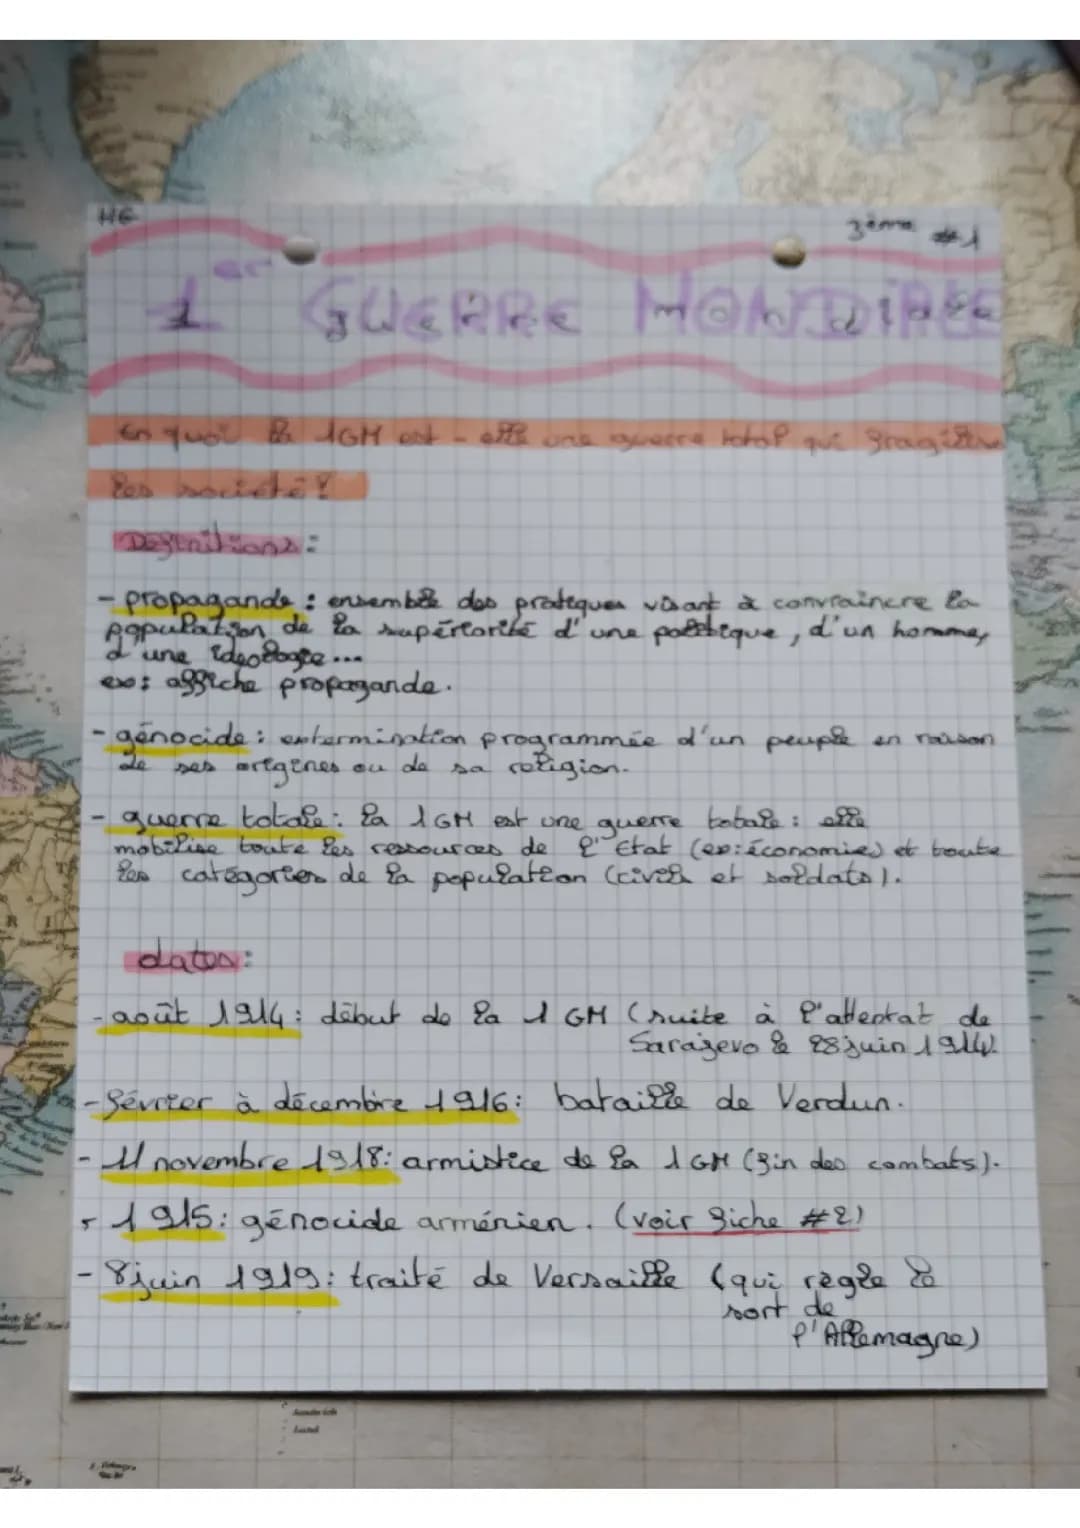 HG
3ème #1
1er GUERRE MONDIALE
En quoi la 1GM est-elle une guerre total qui fragilise
les société?
Définitions:
- propagande : ensemble des pratiques visant à convraincre la
population de la supériorité d'une politique, d'un homme,
d'une idéologie...
ex: affiche propagande.
- génocide : extermination programmée d'un peuple en raison
de ses origines ou de sa religion.
- guerre totale: la 1GM est une guerre totale : elle
mobilise toute les ressources de l'Etat (ex:économie) et toute
les catégories de la population (civils et soldats).
dates:
- août 1914: début de la 1 GM (suite à l'attentat de
Sarajevo le 28 juin 1914).
- février à décembre 1916: bataille de Verdun.
- 11 novembre 1918: armistice de la 1GM (fin des combats).
- 1915: génocide arménien. (voir fiche #2)
- 8juin 1919: traité de Versaille (qui règle le
sort de
l'Allemagne)
Sandwich
Land